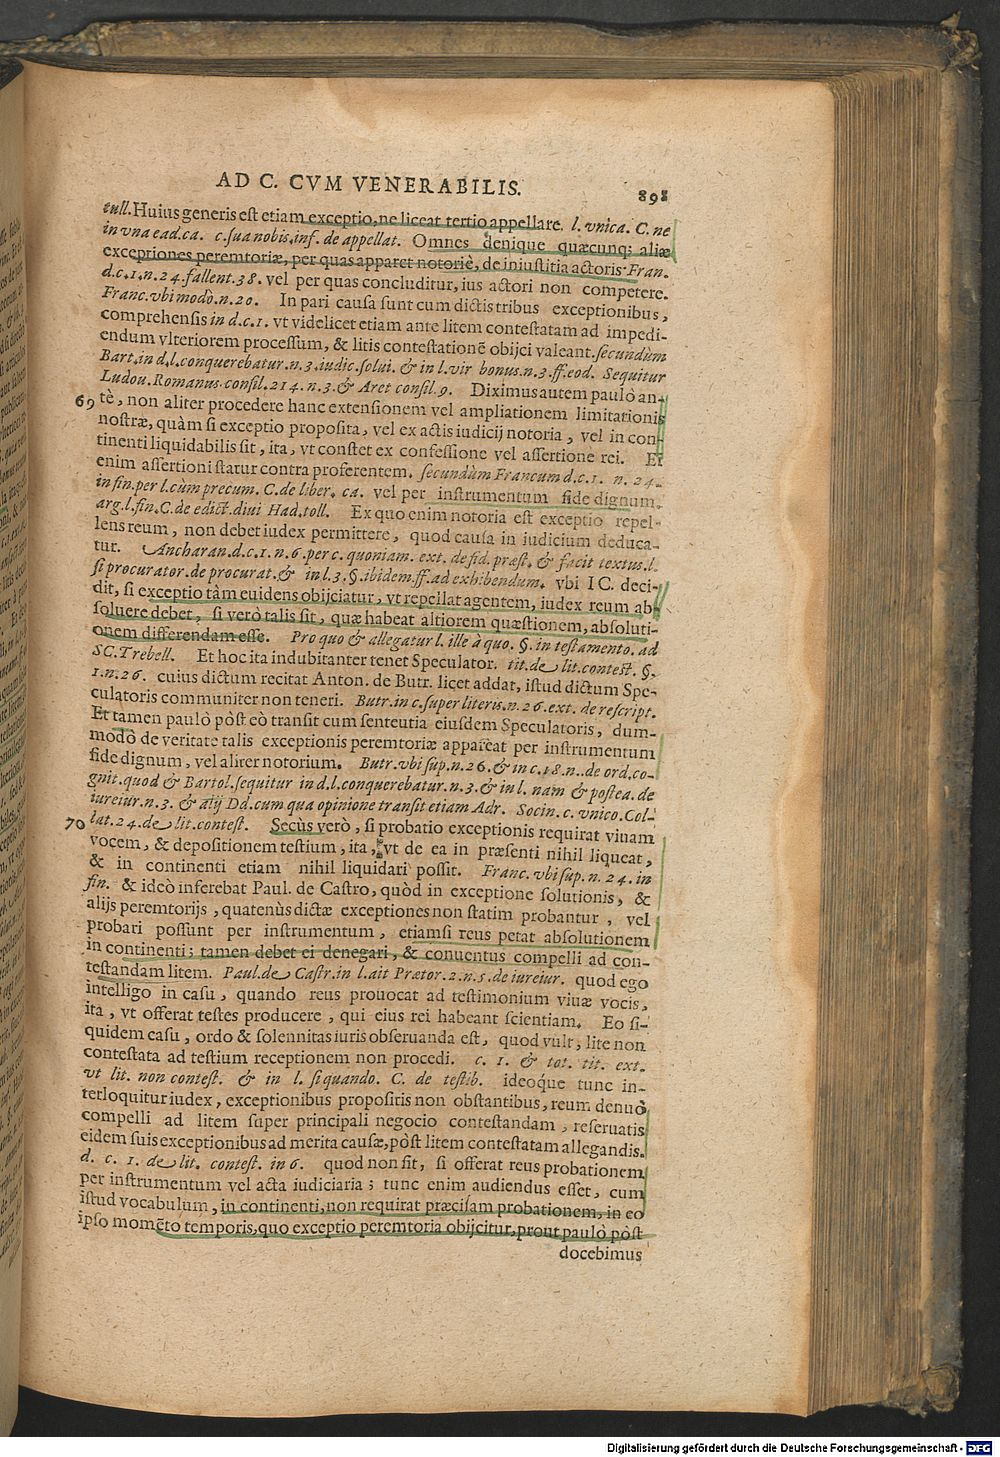 AD C. CVM VENERABILIS.
898
tull. Huius generis est etiam exceptio, ne liceat tertio appellare. l. vnica. C. ne
in vna ead. ca. c. sua nobis. inf. de appellat. Omnes denique quæcunq; aliæ
exceptiones peremtoriæ, per quas apparet notoriè, de iniustitia actoris Fran.
d. c. 1. n. 24. fallent. 38. vel per quas concluditur, ius actori non competere.
Franc. vbi modò. n. 20. In pari causa sunt cum dictis tribus exceptionibus,
comprehensis in d. c. 1. vt videlicet etiam ante litem contestatam ad impedi-
endum vlteriorem processum, & litis contestationẽ obijci valeant. secundùm
Bart. in d. l. conquerebatur. n. 3. iudic. solui. & in l. vir bonus. n. 3. ff. eod. Sequitur
Ludou. Romanus consil. 214. n. 3. & Aret consil. 9. Diximus autem paulò an-
69 tè, non aliter procedere hanc extensionem vel ampliationem limitationis
nostræ, quàm si exceptio proposita, vel ex actis iudicij notoria, vel in con-
tinenti liquidabilis sit, ita, vt constet ex confessione vel assertione rei. Et
enim assertioni statur contra proferentem. secundùm Francum d. c. 1. n. 24.
in fin. per l. cùm precum. C. de liber. ca. vel per instrumentum fide dignum.
arg. l. fin. C. de edict. diui Had. toll. Ex quo enim notoria est exceptio repel-
lens reum, non debet iudex permittere, quod causa in iudicium deduca-
tur. Ancharan. d. c. 1. n. 6. per c. quoniam. ext. de fid. præst. & facit textus. l.
si procurator. de procurat. & in l. 3. §. ibidem. ff. ad exhibendum. vbi IC. deci-
dit, si exceptio tàm euidens obijciatur, vt repellat agentem, iudex reum ab-
soluere debet, si verò talis sit, quæ habeat altiorem quæstionem, absoluti-
onem differendam esse. Pro quo & allegatur l. ille à quo. §. in testamento. ad
SC. Trebell. Et hoc ita indubitanter tenet Speculator. tit. de lit. contest. §.
1. n. 26. cuius dictum recitat Anton. de Butr. licet addat, istud dictum Spe-
culatoris communiter non teneri. Butr. in c. super literis. n. 26. ext. de rescript.
Et tamen paulò pòst eò transit cum senteutia eiusdem Speculatoris, dum-
modò de veritate talis exceptionis peremtoriæ appareat per instrumentum
fide dignum, vel aliter notorium. Butr. vbi sup. n. 26. & in c. 18. n.. de ord. co-
gnit. quod & Bartol. sequitur in d. l. conquerebatur. n. 3. & in l. nam & postea. de
iureiur. n. 3. & alij Dd. cum qua opinione transit etiam Adr. Socin. c. vnico. Col-
70 lat. 24. de lit. contest. Secùs verò, si probatio exceptionis requirat viuam
vocem, & depositionem testium, ita, vt de ea in præsenti nihil liqueat,
& in continenti etiam nihil liquidari possit. Franc. vbi sup. n. 24. in
fin. & ideò inferebat Paul. de Castro, quòd in exceptione solutionis, &
alijs peremtorijs, quatenùs dictæ exceptiones non statim probantur, vel
probari possunt per instrumentum, etiamsi reus petat absolutionem
in continenti; tamen debet ei denegari, & conuentus compelli ad con-
testandam litem. Paul. de Castr. in l. ait Prætor. 2. n. 5. de iureiur. quod ego
intelligo in casu, quando reus prouocat ad testimonium viuæ vocis,
ita, vt offerat testes producere, qui eius rei habeant scientiam. Eo si-
quidem casu, ordo & solennitas iuris obseruanda est, quod vult, lite non
contestata ad testium receptionem non procedi. c. 1. & tot. tit. ext.
vt lit. non contest. & in l. si quando. C. de testib. ideoq́ue tunc in-
terloquitur iudex, exceptionibus propositis non obstantibus, reum denuò
compelli ad litem super principali negocio contestandam, reseruatis
eidem suis exceptionibus ad merita causæ, pòst litem contestatam allegandis.
d. c. 1. de lit. contest. in 6. quod non sit, si offerat reus probationem
per instrumentum vel acta iudiciaria; tunc enim audiendus esset, cum
istud vocabulum, in continenti, non requirat præcisam probationem, in eo
ipso momẽto temporis, quo exceptio peremtoria obijcitur, prout paulò pòst
docebimus
Digitalisierung gefördert durch die Deutsche Forschungsgemeinschaft - DFG